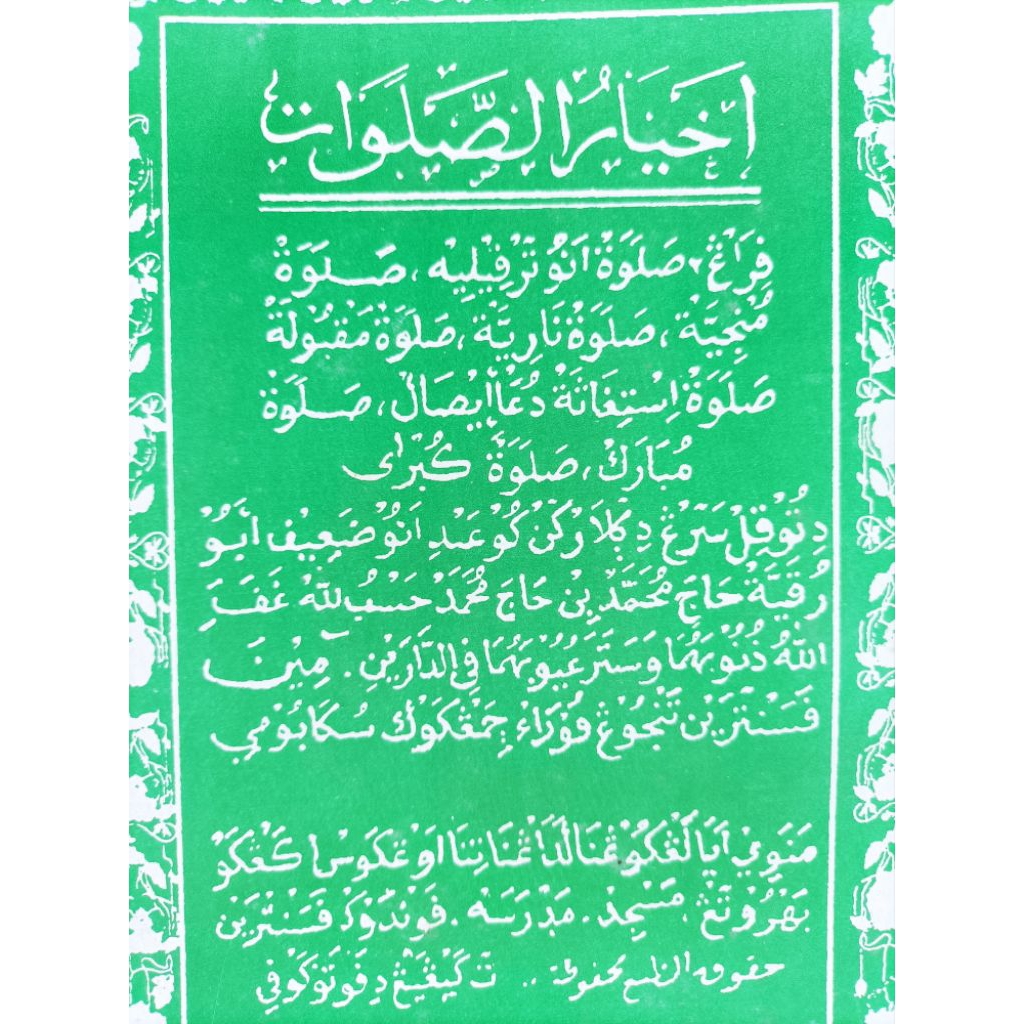 اِخْيَارُ الصَّلَوَات
فِرَاڠ٢ صَلَوَةْ اَنُوْ تَرْڤِيْلِيْه، صَلَوَةْ
مُنْجِيَّة، صَلَوَةْ نَارِيَّة، صَلَوَةْ مَقْبُولَةْ
صَلَوَةْ اِسْتِغَاثَةْ دُعَاأِيْصَالْ، صَلَوَةْ
مُبَارَكْ، صَلَوَةْ كُبْرَاى
دِتُوْقِلْ سَرَڠْ دِكَلاَرْكَنْ كُوْ عَبْدِ اَنُوْ ضَعِيْف أَبُوْ
رُقَيَّةْ حَاجْ مُحَمَّدْ بِنْ حَاجْ مُحَمَّدْ حَسْبُ اللهْ غَفَرَ
اللهُ ذُنُوْبَهُمَا وَسَتَرَ عُيُوْبَهُمَا فِي الدَّارَيْنِ. آمِيْنَ
فَسَنْتْرَيْن تَنْجُوْڠْ فُوْرَاءْ چِمَڠْكَوْكْ سُكَابُوْمِي
مَنَوِيْ اَيَا
بَهْرُوْ تَڠْ مَسْجِدْ. مَدْرَسَه. فَوْنْدَوْكْ فَسَنْتْرَيْن
حقوق الطبع محفوظة .. تَ كَيْڠِيْڠْ دِفَوْتَوْكَوْفِي